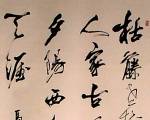 枯藤
人家古
夕陽西
天涯